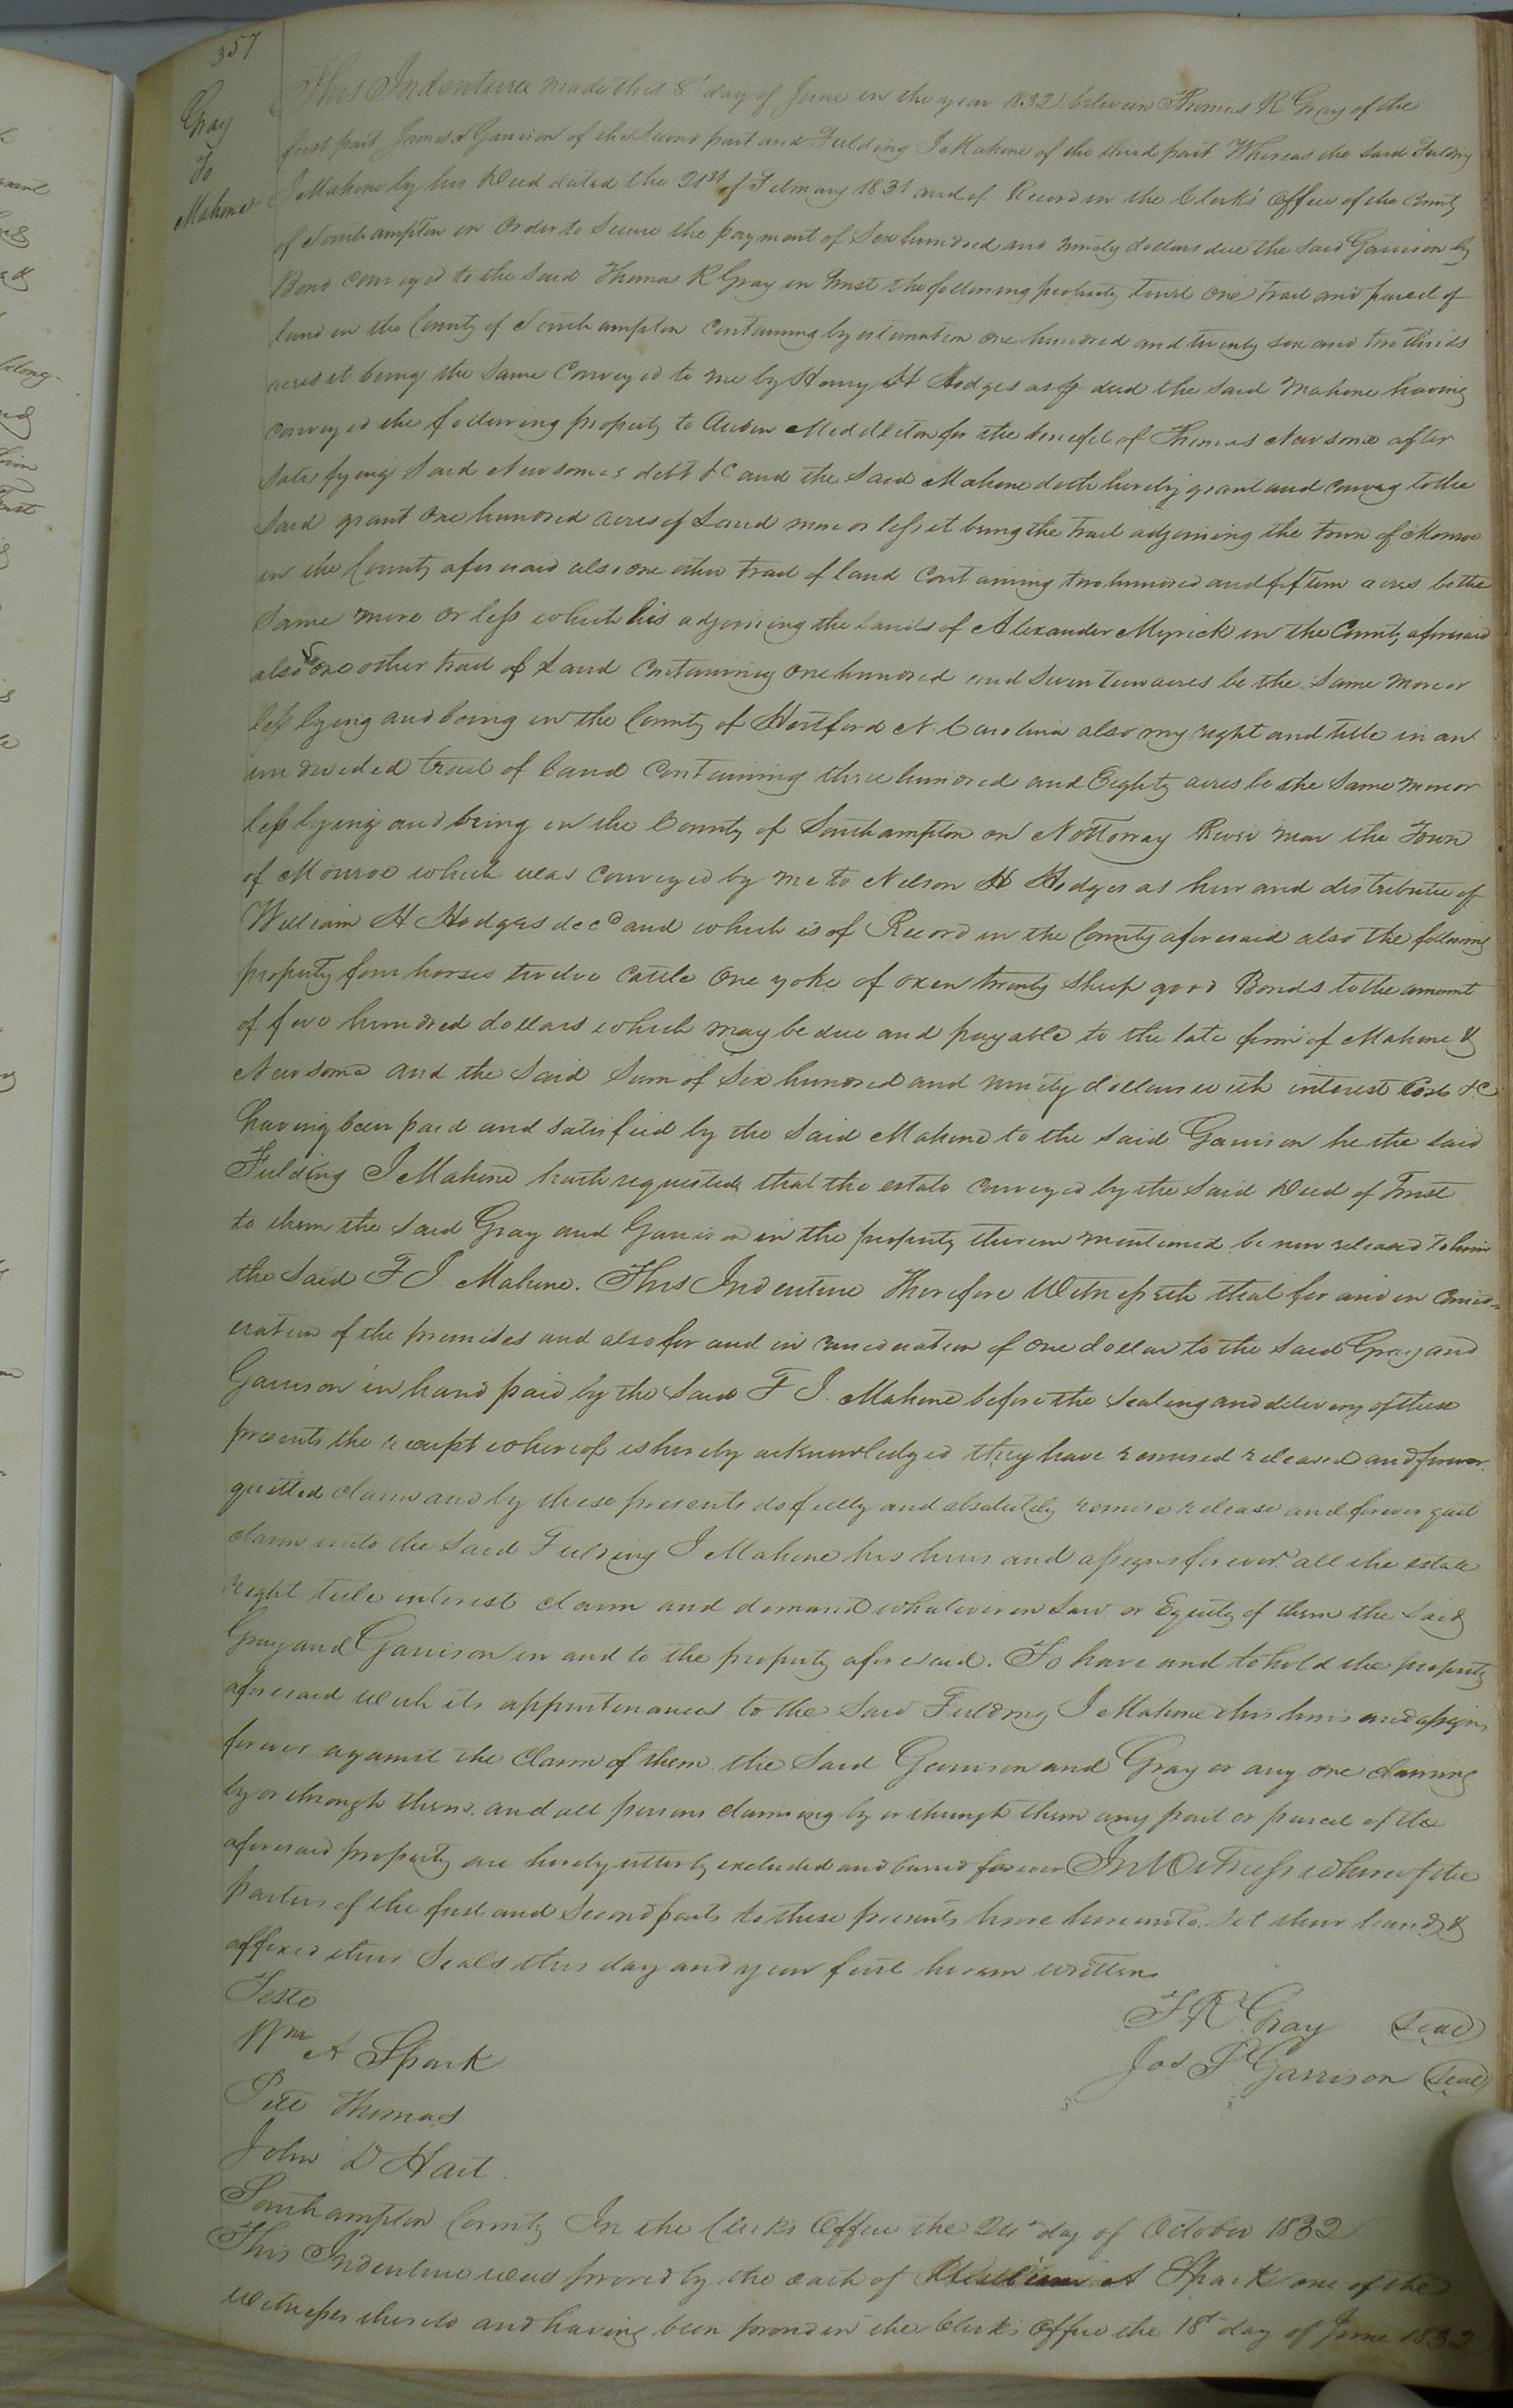 357
Gray
To
Mahone
This Indenture made this 8th day of June in the year 1832 between Thomas R Gray of the
first part James P Garrison of the Second part and Fielding J Mahone of the third part Whereas the said Fielding
J Mahone by his Deed dated the 21st of February 1831 and of Record in the Clerk's Office of the County
of Southampton in Order to Secure the payment of Six hundred and ninety dollars due the said Garrison by
Bond conveyed to the said Thomas R Gray in trust the following property to wit one tract and parcel of
land in the County of Southampton Containing by estimation one hundred and twenty six and two thirds
acres it being the Same Conveyed to me by Henry H Hodges as p deed the said Mahone having
conveyed the following property to Middleton for the benefit of Thomas Newsome after
satisfying said Newsomes debt &c and the said Mahone doth hereby grant and convey to the
said grant One hundred acres of Land more or less it being the tract adjoining the town of Monroe
in the County aforesaid also one other tract of land Containing two hundred and fifteen acres be the
Same more or less which lies adjoining the lands of Alexander Myrick in the County aforesaid
also one other tract of Land Containing One hundred and Seventeen acres be the Same more or
less lying and being in the County of Hertford N. Carolina also my right and title in an
undivided tract of land Containing three hundred and Eighty acres be the Same more or
less lying and being in the County of Southampton on Nottoway River near the Town
of Monroe which was Conveyed by me to Nelson H Hodges as heir and distributee of
William H Hodges decd and which is of Record in the County aforesaid also the following
property four horses twelve Cattle One yoke of oxen twenty Sheep good Bonds to the amount
of five hundred dollars which may be due and payable to the late firm of Mahone &
Newsome and the Said Sum of Six hundred and ninety dollars with interest Costs &c
having been paid and satisfied by the Said Mahone to the said Garrison he the said
Fielding J Mahone hath requested that the estate conveyed by the Said Deed of Trust
to them the said Gray and Garrison in the property therein mentioned be now released to him
the Said F J. Mahone. This Indenture Therefore Witnesseth that for and in consid=
eration of the premises and also for and in consideration of one dollar to the said Gray and
Garrison in hand paid by the Said F J. Mahone before the Sealing and delivery of these
presents the receipt whereof is hereby acknowledged they have remised released and forever
quitted claim and by these presents do fully and absolutely remise release and forever quit
claim unto the Said Fielding J Mahone his heirs and assigns forever all the estate
right title interest claim and demand whatever in Law or Equity of them the Said
Gray and Garrison in and to the property aforesaid. To have and to hold the property
aforesaid with its appurtenances to the Said Fielding J Mahone his heirs and assigns
forever against the Claim of them the Said Garrison and Gray or any one claiming
by or through them and all persons claiming by or through them any part or parcel of the
aforesaid property are hereby utterly excluded and barred forever In Witness whereof the
parties of the first and Second parts to these presents have hereunto Set their hands &
affixed their Seals this day and year first herein written
Teste
Wm A Spark
Thomas
John D Hart
T R Gray Seal
Jas P Garrison Seal
Southampton County In the Clerks Office the day of October 1832
This Indenture was proved by the oath of William A Spark one of the
witnesses thereto and having been proved in the Clerk's Office the 18th day of June 1832